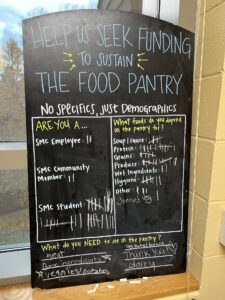 HELP US SEEK FUNDING
TO SUSTAIN
THE FOOD PANTRY
NO SPECIFICS, JUST DEMOGRAPHICS
ARE YOU A...
SMC Employee:
SMC Community
Member:
SMC Student:
What foods do you depend
on the pantry for?
Soup/sauce:
Protein:
Grains:
Produce:
Wet Ingredients:
Hygiene:
Other:
What do you NEED to see in the pantry?
meat
veggies/
Thank You!
dairy